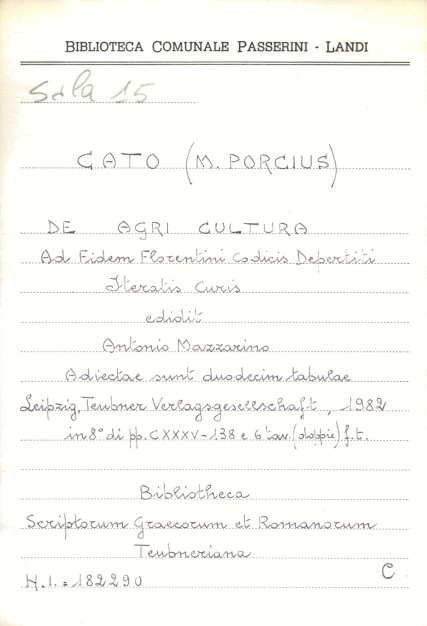 BIBLIOTECA COMUNALE PASSERINI - LANDI
Sala 15
CATO (M. PORCIUS)
DE AGRI CULTURA
Ad Fidem Florentini Codicis Depertiti
Iteratis Curis
edidit
Antonio Mazzarino
Adiectae sunt duodecim tabulae
Leipzig, Teubner Verlagsgesellschaft, 1982
in 8° di pp. CXXXV-138 e 6 tav. (doppie) f.t.
Bibliotheca
Scriptorum Graecorum et Romanorum
Teubneriana
N.I. = 182290
C